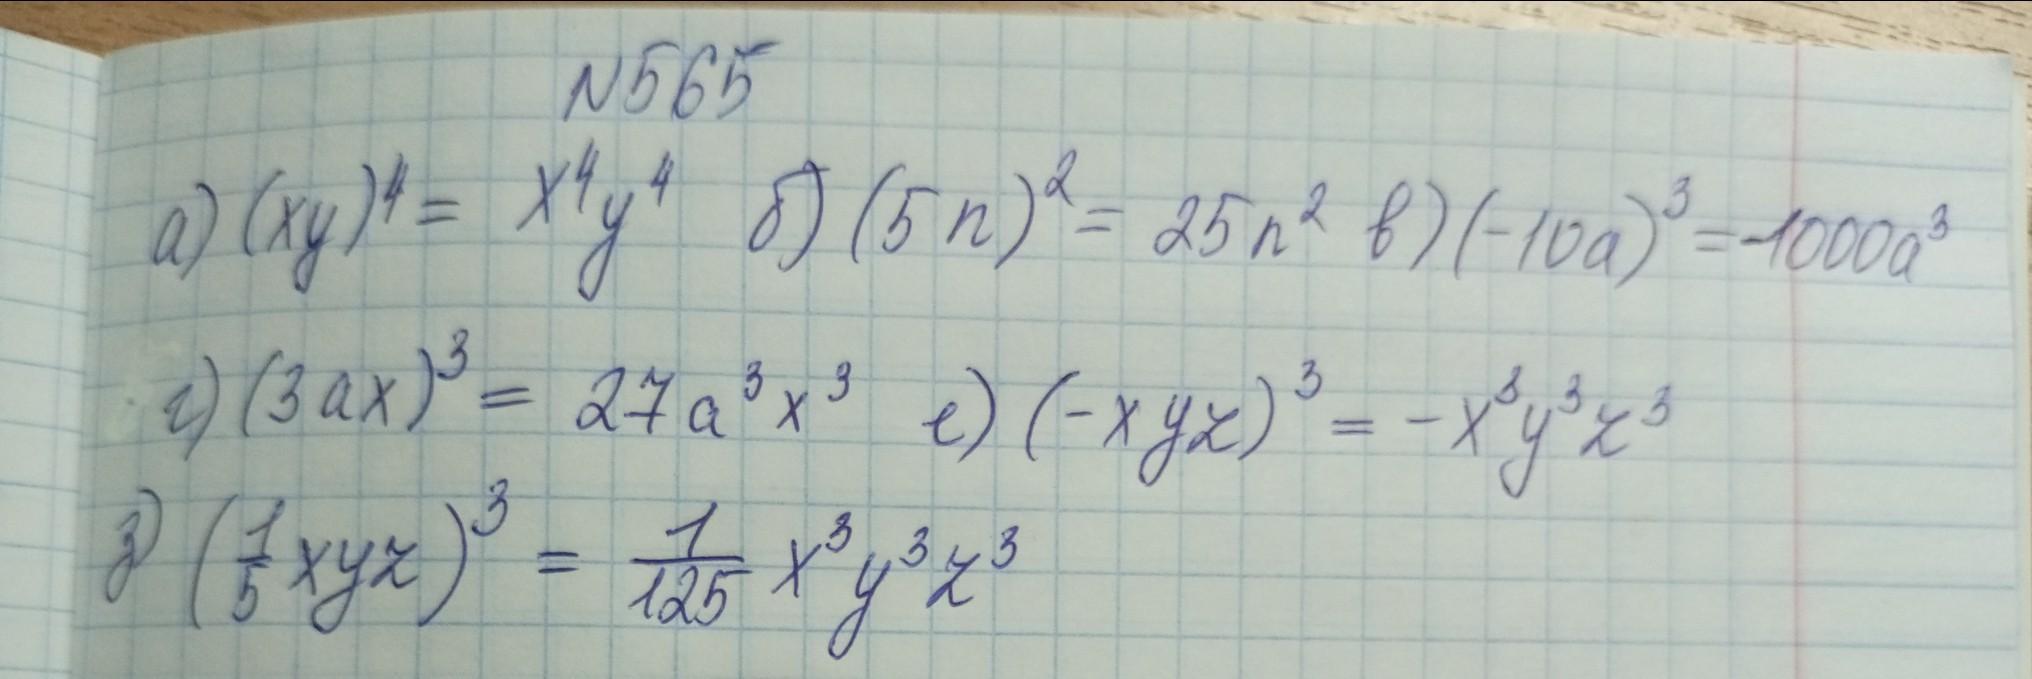 N565
а) (xy)⁴ = x⁴y⁴ б) (5n)² = 25n² в) (-10a)³ = -1000a³
г) (3ax)³ = 27a³x³ е) (-xyz)³ = -x³y³z³
з) (1/5 xyz)³ = 1/125 x³y³z³